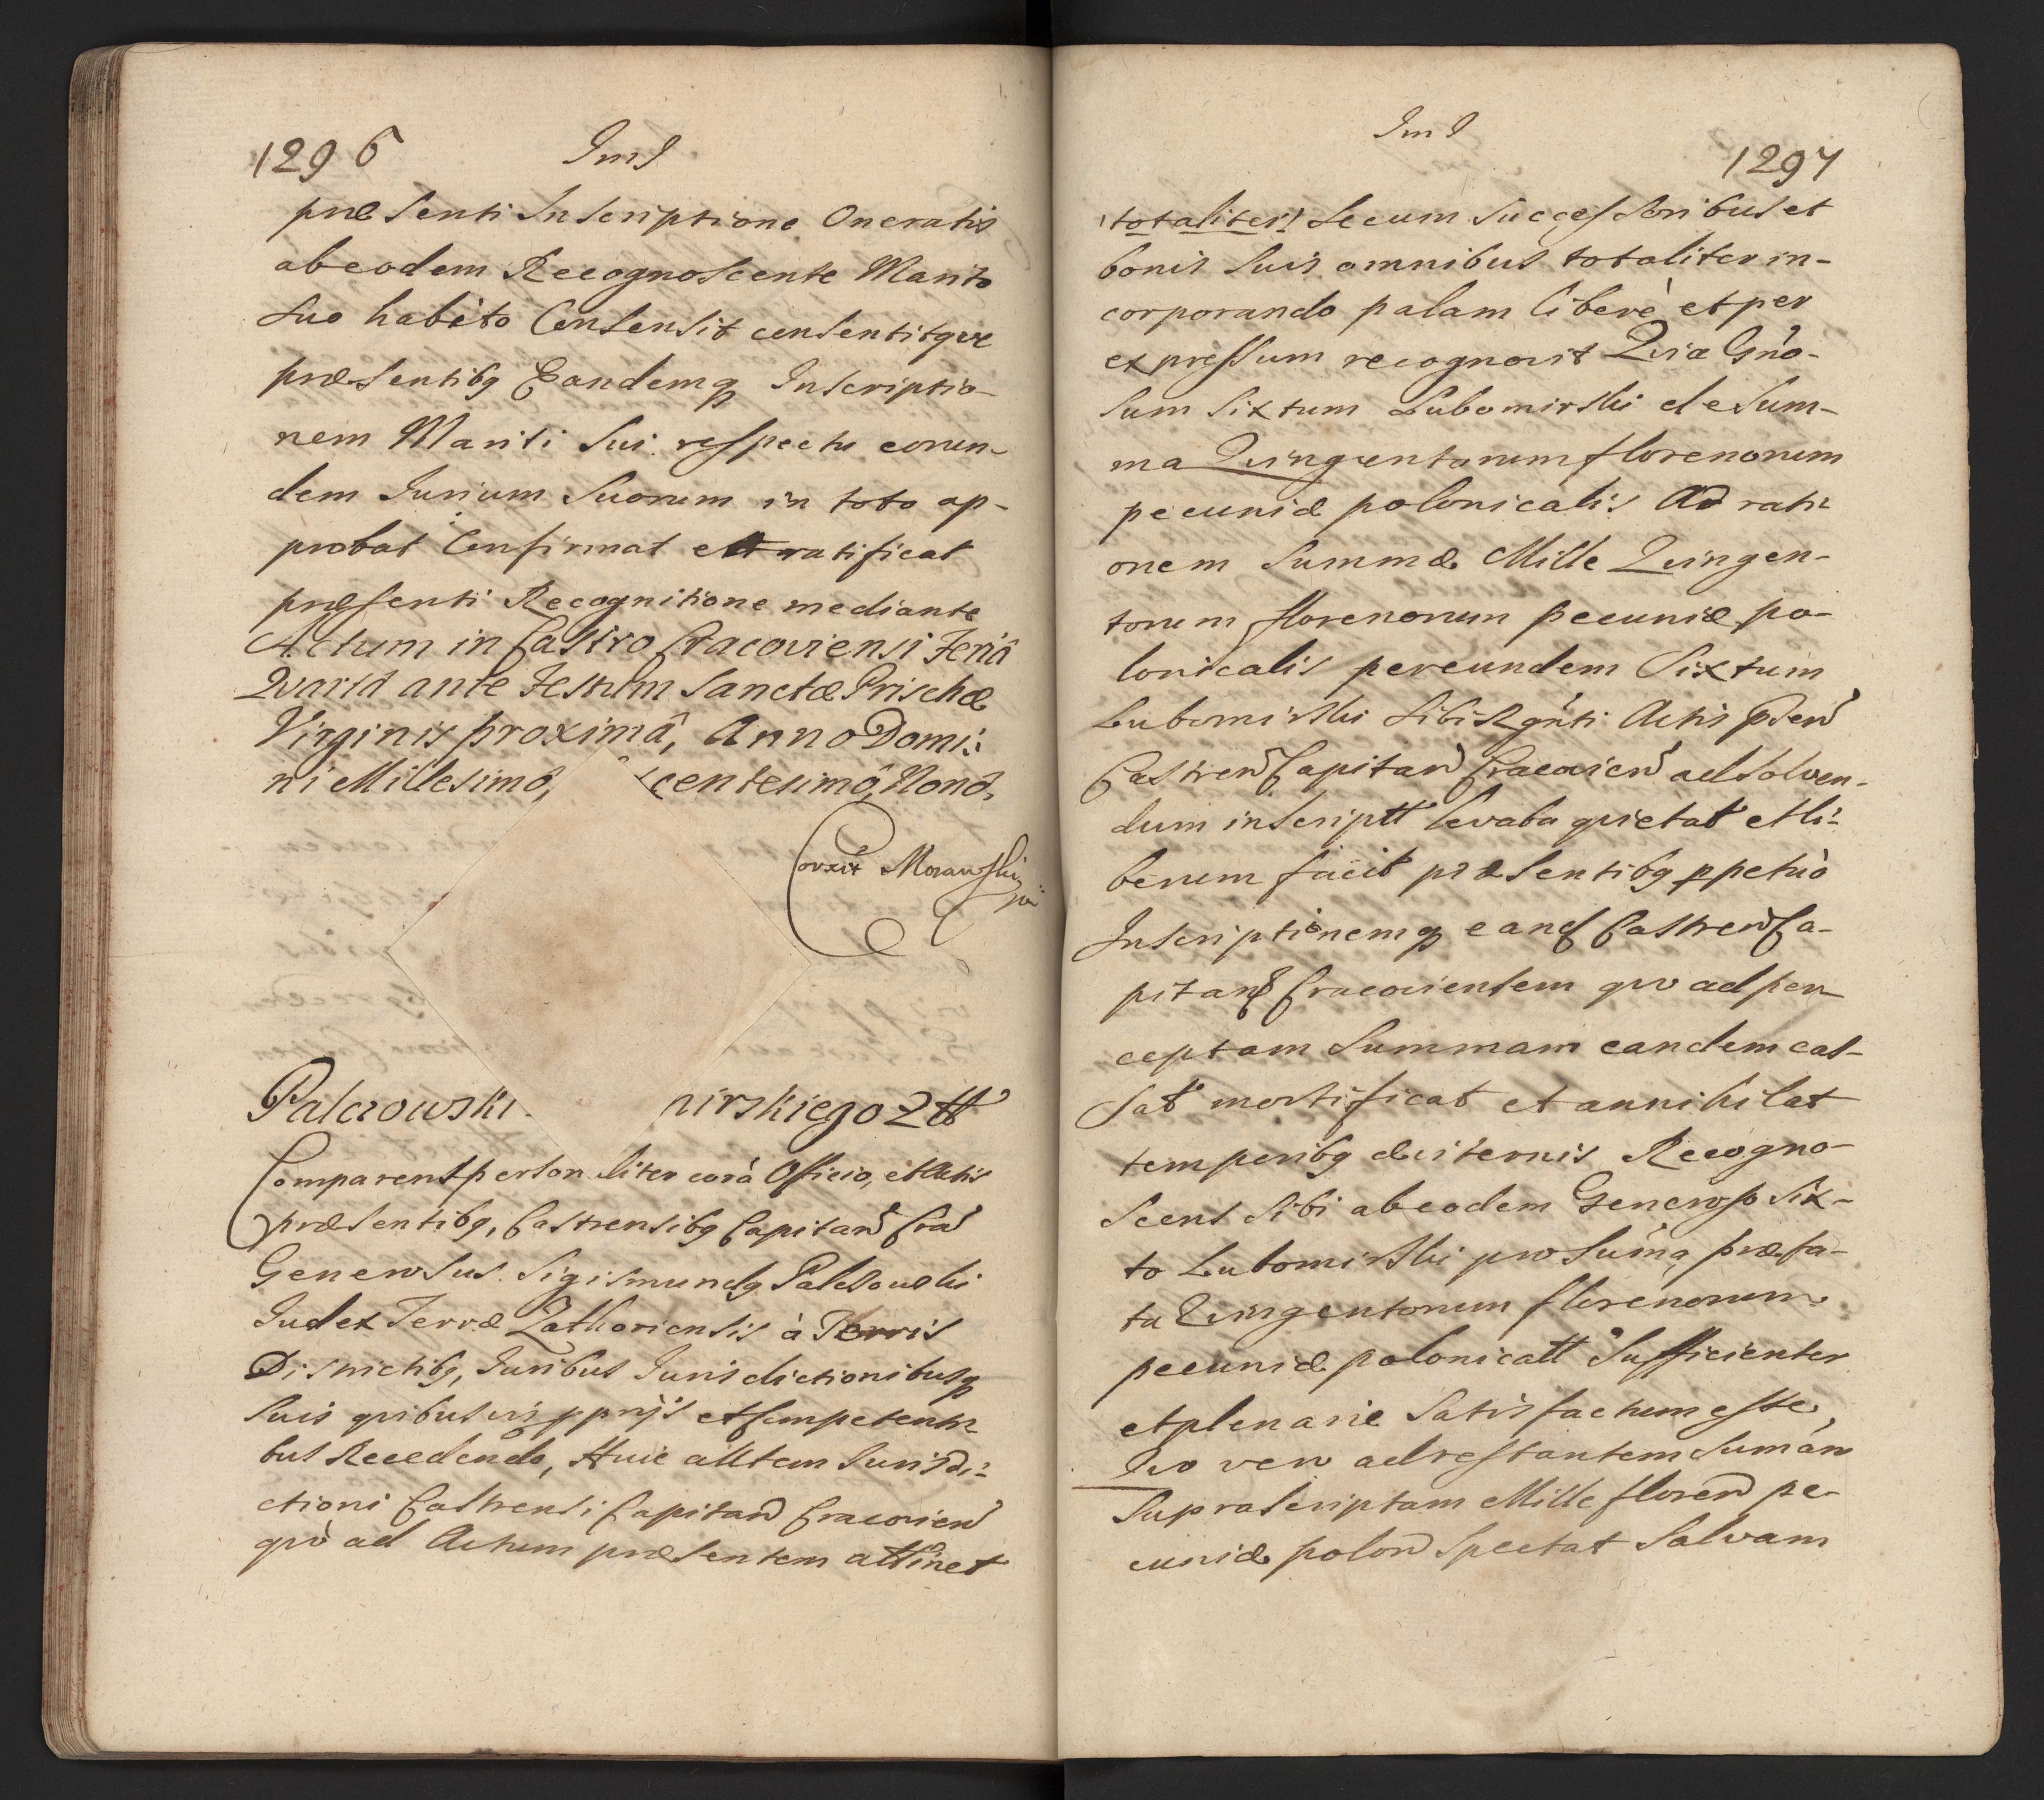 1296
præsenti Inscriptione Oneratis
ab eodem Recognoscente Marito
suo habito Consensit consentitque
præsentibq Eandemq Inscriptio-
nem Mariti Sui respectu eorun-
dem Jurium Suorum in toto ap-
probat Confirmat et ratificat
præsenti Recognitione mediante
Actum in Castro Cracoviensi Feriâ
Quartâ ante Festum Sanctæ Prischæ
Virginis proximâ, Anno Domi:
ni Millesimô, centesimô, Nonô,
Corxit Morawski
Palczowski nirskiego Ztt
Comparens person liter corà Officio, et Actis
præsentibq, Castrensibq Capitan Cra
Generosus Sigismundq Palczowski
Judex Terræ Zathoriensis à Terris
Districtibq, Juribus Jurisdictionibusq
suis quibusvis pprijs et Competenti-
bus Recedendo, Huic alltem Jurisdi-
ctioni Castrensi Capitan Cracovien
quò ad Actum præsentem attinet
1297
totaliter secum Successoribus et
bonis suis omnibus totaliter in-
corporando palam liberè et per
expressum recognovit Quia Gno-
sum Sixtum Lubomirski de Sum-
ma Quingentorum florenorum
pecuniæ polonicalis Ad rati-
onem Summæ Mille Quingen-
torum florenorum pecuniæ po-
lonicalis per eundem Sixtum
Lubomirski sibi Rgnti Actis pden
Castren Capitan Cracovien ad solven-
dum inscriptt quietat et li-
berum facit præsentibq ppetuò
Inscriptionemq eand Castren Ca-
pitan Cracoviensem quo ad per-
ceptam Summam eandem cas-
sat mortificat et annihilat
temporibq æviternis Recogno-
scens sibi ab eodem Generoso Six-
to Lubomirski pro suma præfa-
ta Quingentorum florenorum
pecuniæ polonicatt sufficienter
et plenarie Satisfactum esse,
Quo vero ad restantem sumam
suprascriptam Mille floren pe-
cuniæ polon spectat Salvam